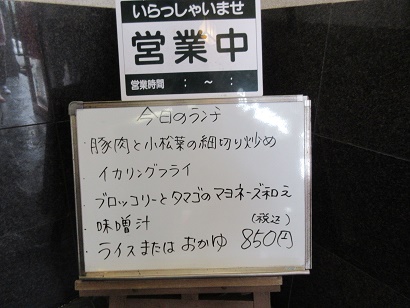 いらっしゃいませ
営業中
営業時間 : ～ :
今日のランチ
・豚肉と小松菜の細切り炒め
・イカリングフライ
・ブロッコリーとタマゴのマヨネーズ和え
・味噌汁 (税込)
・ライスまたはおかゆ 850円